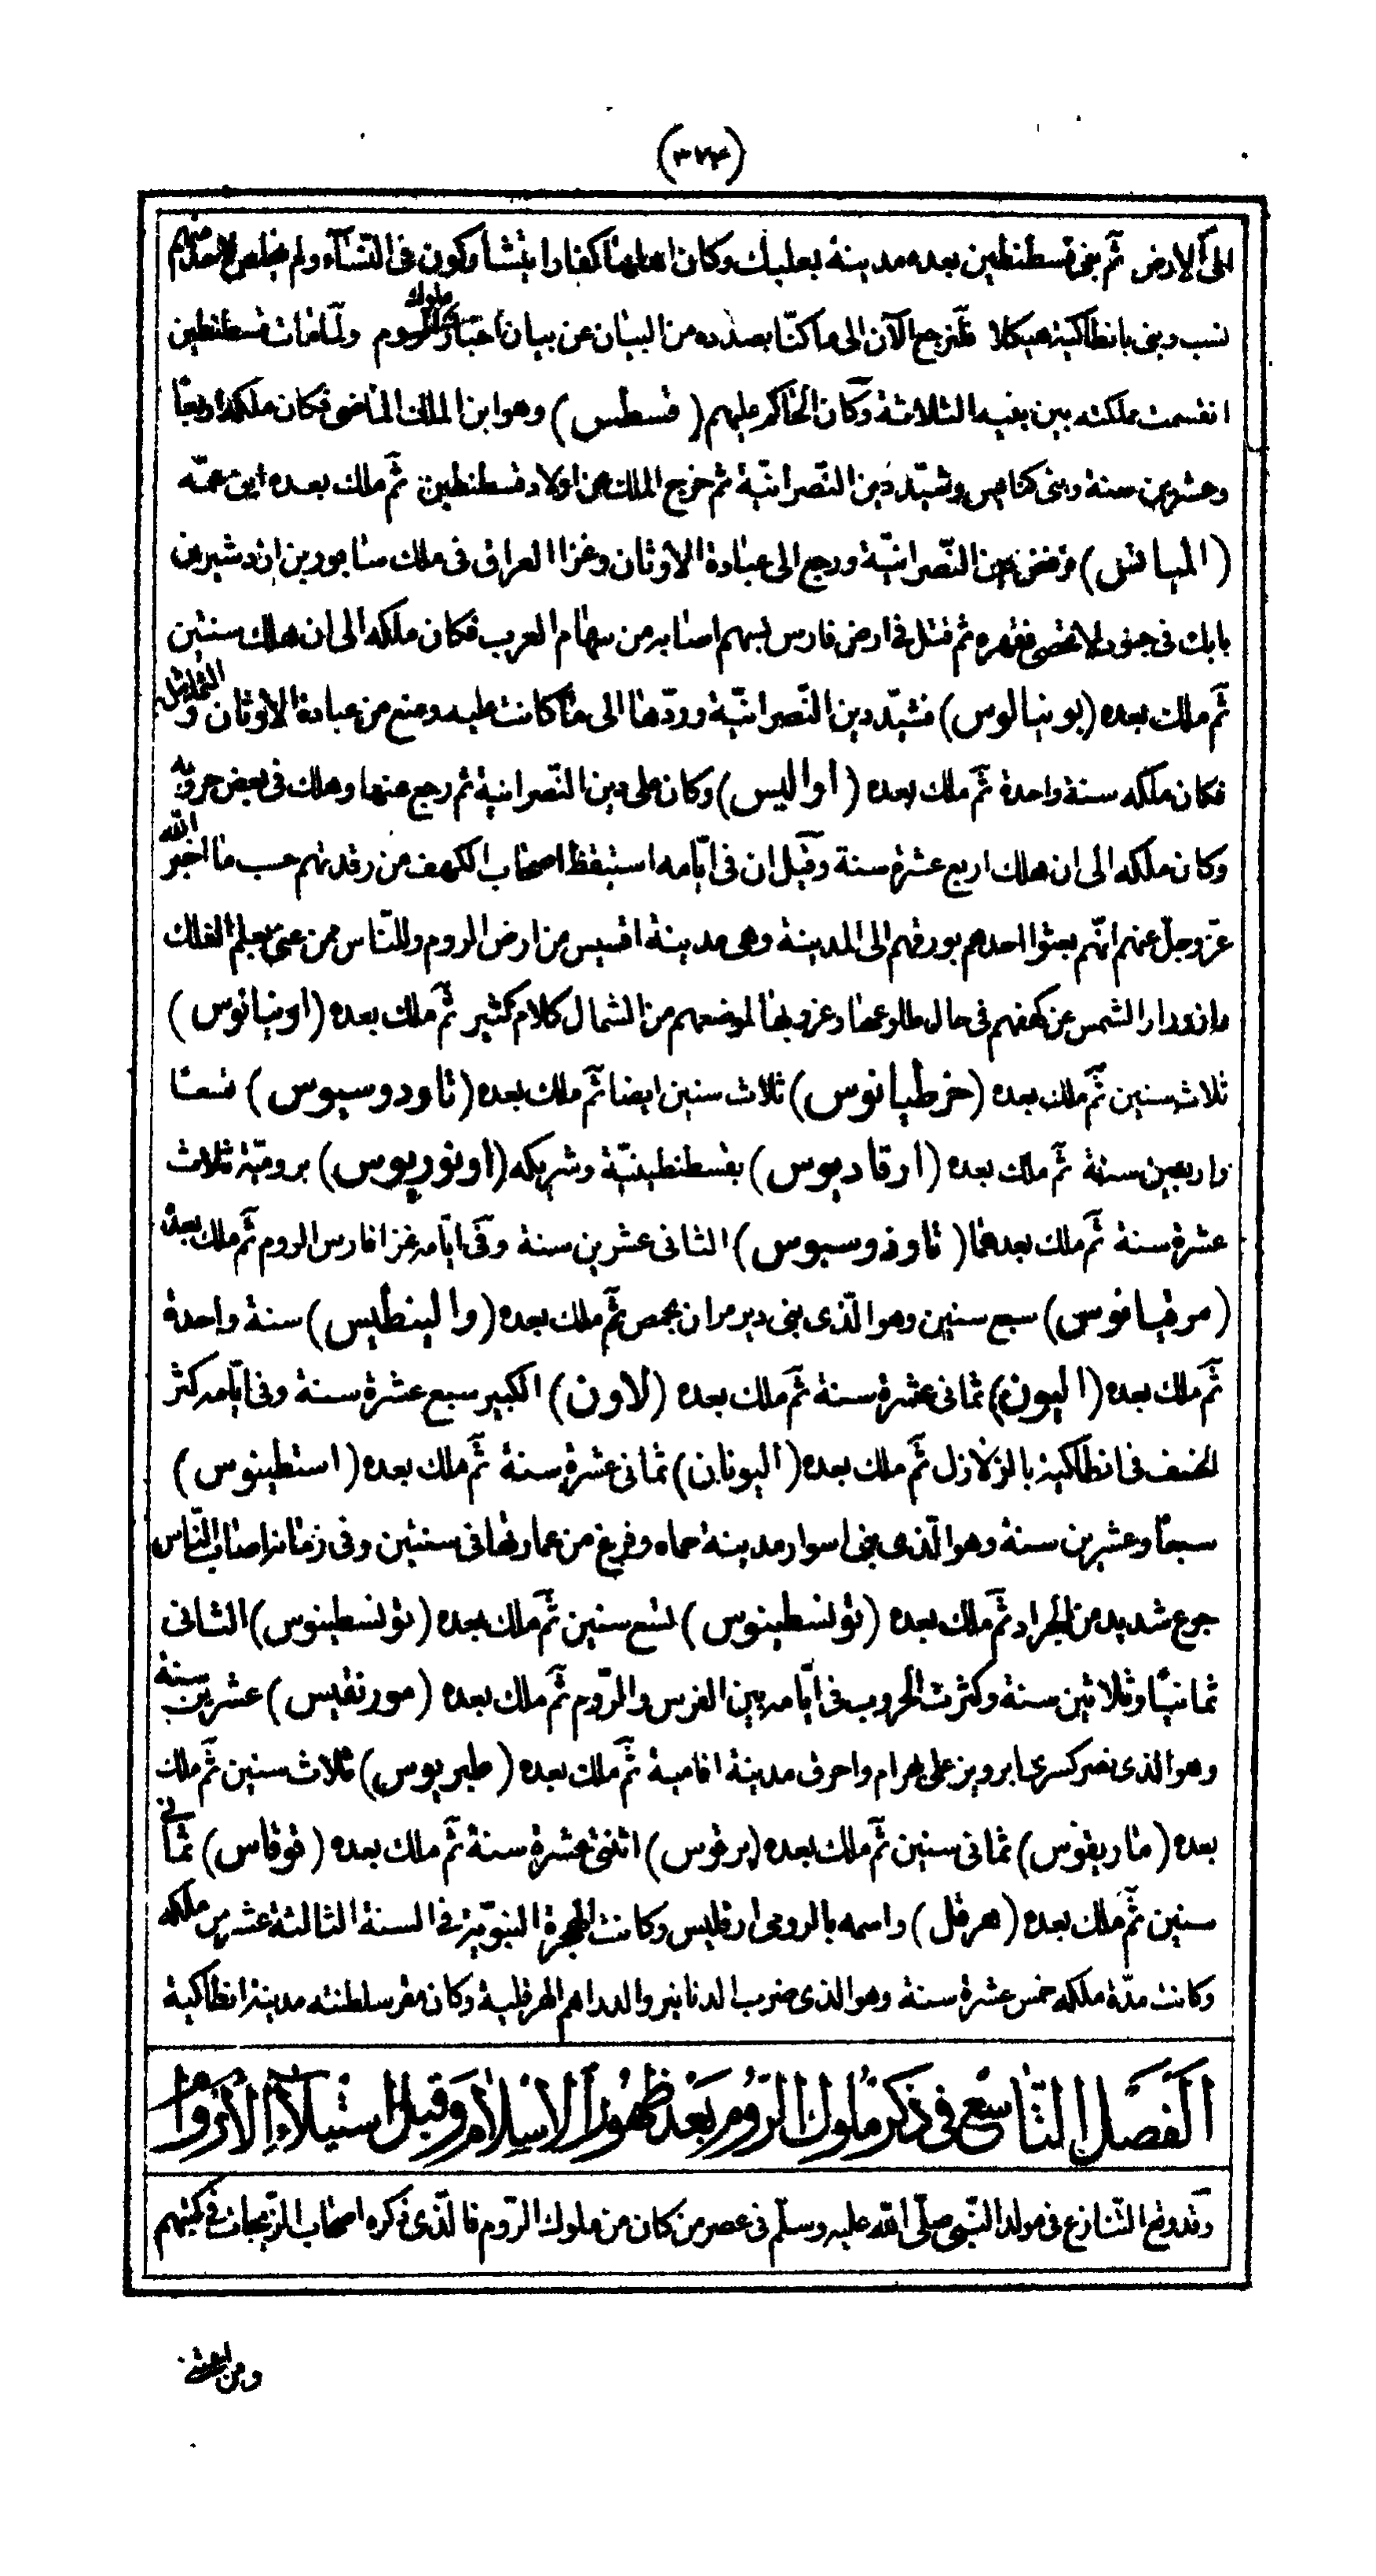 (٣٧٤)
الى الارض ثم بنى قسطنطين بعده مدينة بعلبك وكان اهلها كفارا يتشاركون فى النساء ولم يخلص لاحد منهم
نسب وبنى بانطاكية هيكلا فلنرجع الآن الى ما كنا بصدده من البيان عن بيان اخبار ملوك الروم ولما مات قسطنطين
انقسمت مملكته بين بنيه الثلاثة وكان الحاكم عليهم (قسطس) وهو ابن الملك الماضى فكان ملكه اربعا
وعشرين سنة وبنى كنايس وشيد دين النصرانية ثم خرج الملك من اولاد قسطنطين ثم ملك بعده ابن عمه
(اليانس) فرفض دين النصرانية ورجع الى عبادة الاوثان وغزا العراق فى ملك سابور بن اردشير بن
بابك فى جنود لا تحصى فقهره ثم قتل فى ارض فارس بسهم اصابه من سهام العرب فكان ملكه الى ان هلك سنتين
ثم ملك بعده (بونيالوس) فشيد دين النصرانية وردها الى ما كانت عليه ومنع من عبادة الاوثان والتماثيل
فكان ملكه سنة واحدة ثم ملك بعده (اواليس) وكان على دين النصرانية ثم رجع عنها وهلك فى بعض حروبه
وكان ملكه الى ان هلك اربع عشرة سنة وقيل ان فى ايامه استيقظ اصحاب الكهف من رقدتهم حسب ما اخبر الله
عز وجل عنهم انهم بعثوا احدهم بورقهم الى المدينة وهى مدينة افسيس من ارض الروم وللناس ممن عنى بعلم الفلك
وازورار الشمس عن كهفهم فى حال طلوعها وغروبها لموضعهم من الشمال كلام كثير ثم ملك بعده (اونيانوس)
ثلاث سنين ثم ملك بعده (خرطيانوس) ثلاث سنين ايضا ثم ملك بعده (تاودوسيوس) تسعا
واربعين سنة ثم ملك بعده (ارقاديوس) بقسطنطينية وشريكه (اونوريوس) برومية ثلاث
عشرة سنة ثم ملك بعدهما (تاوذوسيوس) الثانى عشرين سنة وفى ايامه غزا فارس الروم ثم ملك بعده
(مرقيانوس) سبع سنين وهو الذى بنى دير مران بحمص ثم ملك بعده (والينطيس) سنة واحدة
ثم ملك بعده (اليون) ثمانى عشرة سنة ثم ملك بعده (لاون) الكبير سبع عشرة سنة وفى ايامه كثر
الخسف فى انطاكية بالزلازل ثم ملك بعده (اليونان) ثمانى عشرة سنة ثم ملك بعده (اسطينوس)
سبعا وعشرين سنة وهو الذى بنى اسوار مدينة حماه وفرغ من عمارتها فى سنتين وفى زمانه اصاب الناس
جوع شديد من الجراد ثم ملك بعده (نولسطينوس) تسع سنين ثم ملك بعده (نولسطينوس) الثانى
ثمانيا وثلاثين سنة وكثرت الحروب فى ايامه بين الفرس والروم ثم ملك بعده (مورنقيس) عشرين سنة
وهو الذى نصر كسرى ابرويز على بهرام واحرق مدينة افامية ثم ملك بعده (طبريوس) ثلاث سنين ثم ملك
بعده (ماريقوس) ثمانى سنين ثم ملك بعده (برغوس) اثنتى عشرة سنة ثم ملك بعده (فوقاس) ثمانى
سنين ثم ملك بعده (هرقل) واسمه بالرومى ارقليس وكانت الهجرة النبوية فى السنة الثالثة عشر من ملكه
وكانت مدة ملكه خمس عشرة سنة وهو الذى ضرب الدنانير والدراهم الهرقلية وكان مقر سلطنته مدينة انطاكية
الفصل التاسع فى ذكر ملوك الروم بعد ظهور الاسلام وقبل استيلاء الاروام
وقد وقع التنازع فى مولد النبى صلى الله عليه وسلم فى عصر من كان من ملوك الروم فالذى ذكره اصحاب الزيجات فى كتبهم
ومن